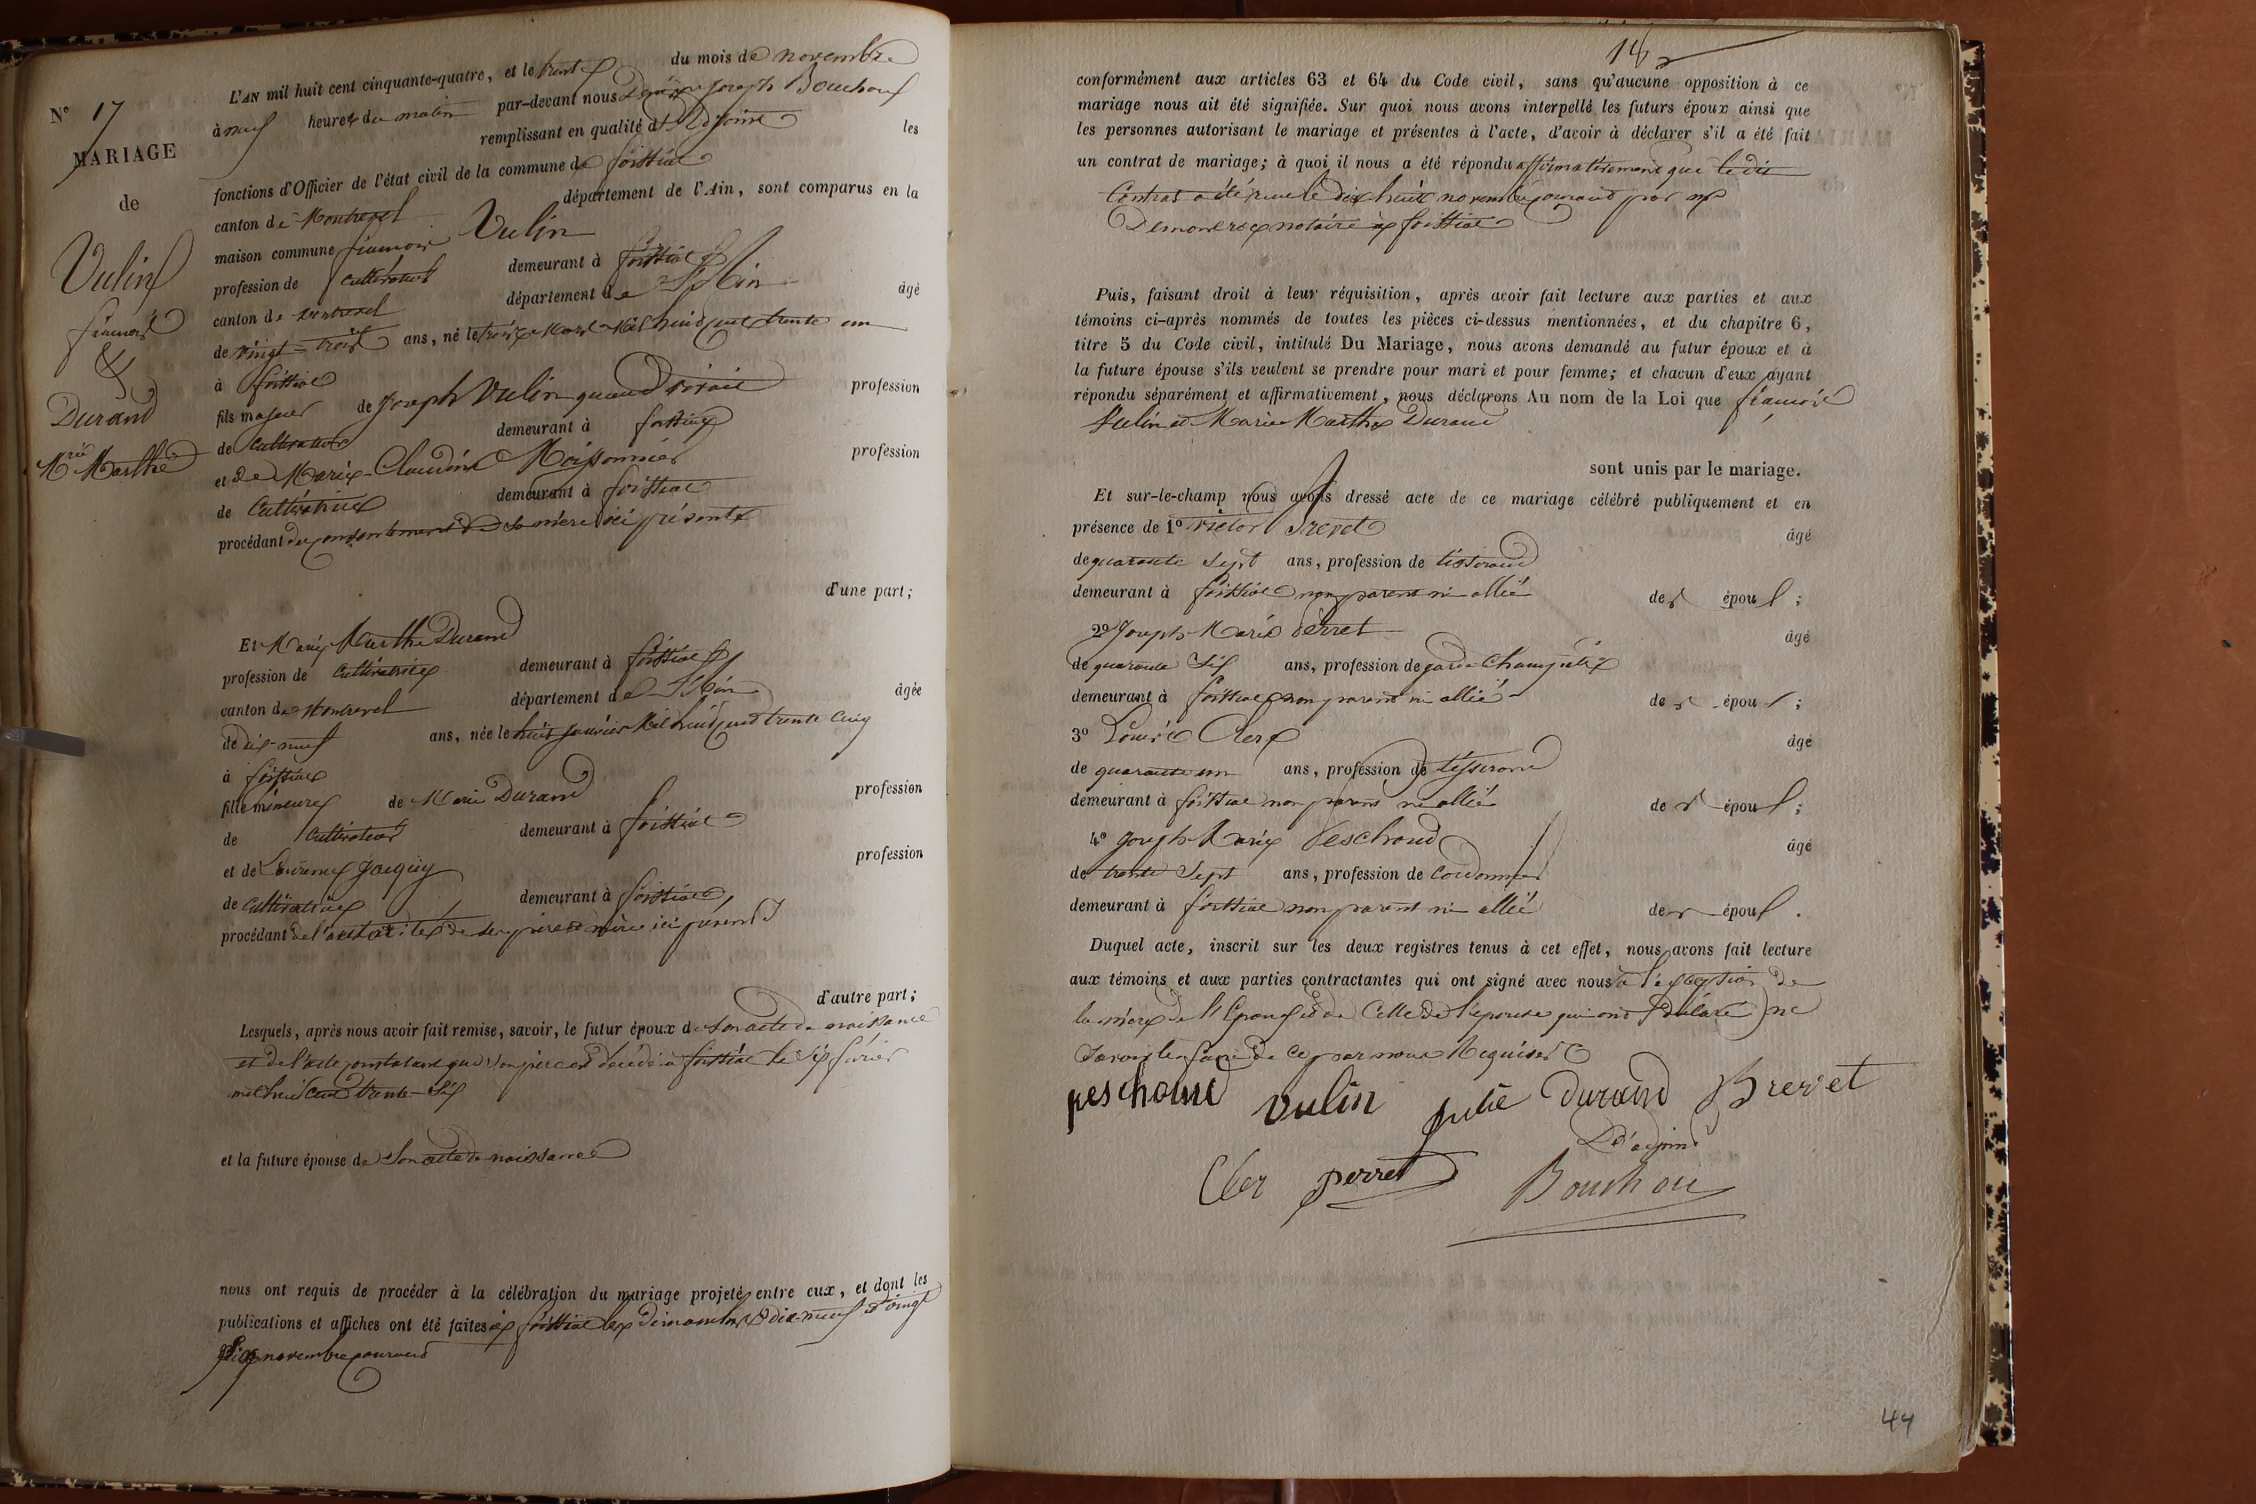 N° 17
MARIAGE
de
Vulin
françois
&
Durand
Mrie Marthe
L'AN mil huit cent cinquante-quatre, et le trente du mois de novembre
à neuf heures du matin par-devant nous Joseph Bouchoux
remplissant en qualité d'adjoint les
fonctions d'Officier de l'état civil de la commune de foissiat
canton de Montrevel département de l'Ain, sont comparus en la
maison commune françois Vulin
profession de cultivateur demeurant à foissiat
canton de montrevel département de l'Ain âgé
de vingt-trois ans, né le trois Mars Mil huit cent trente un
à foissiat
fils majeur de Joseph Vulin quand vivait profession
de cultivateur demeurant à foissiat
et de Marie-Claudine Moissonnier profession
de Cultivatrice demeurant à foissiat
procédant du consentement de sa mère ici présente
d'une part;
Et Marie Marthe Durand
profession de cultivatrice demeurant à foissiat
canton de Montrevel département de l'Ain âgée
de dix-neuf ans, née le huit janvier Mil huit cent trente cinq
à foissiat
fille mineure de Marie Durand profession
de cultivateur demeurant à foissiat
et de Laurence Jacquy profession
de cultivatrice demeurant à foissiat
procédant de l'autorité de ses père et mère ici présents
d'autre part;
Lesquels, après nous avoir fait remise, savoir, le futur époux de son acte de naissance
et de l'acte constatant que son père est décédé à foissiat le six février
mil huit cent trente-six
et la future épouse de son acte de naissance
nous ont requis de procéder à la célébration du mariage projeté entre eux, et dont les
publications et affiches ont été faites à foissiat les dimanches dix-neuf et vingt
six novembre courant
conformément aux articles 63 et 64 du Code civil, sans qu'aucune opposition à ce
mariage nous ait été signifiée. Sur quoi nous avons interpellé les futurs époux ainsi que
les personnes autorisant le mariage et présentes à l'acte, d'avoir à déclarer s'il a été fait
un contrat de mariage; à quoi il nous a été répondu affirmativement que ledit
Contrat a été reçu le dix huit novembre courant par me
notaire à foissiat
Puis, faisant droit à leur réquisition, après avoir fait lecture aux parties et aux
témoins ci-après nommés de toutes les pièces ci-dessus mentionnées, et du chapitre 6,
titre 5 du Code civil, intitulé Du Mariage, nous avons demandé au futur époux et à
la future épouse s'ils veulent se prendre pour mari et pour femme; et chacun d'eux ayant
répondu séparément et affirmativement, nous déclarons Au nom de la Loi que françois
Vulin et Marie Marthe Durand
sont unis par le mariage.
Et sur-le-champ nous avons dressé acte de ce mariage célébré publiquement et en
présence de 1° Victor Brevet âgé
de quarante sept ans, profession de tisserand
demeurant à foissiat non parent ni allié des époux;
2° Joseph-Marie Perret âgé
de quarante six ans, profession de garde Champêtre
demeurant à foissiat non parent ni allié des époux;
3° Louis Clerc âgé
de quarante un ans, profession de tisserand
demeurant à foissiat non parent ni allié des époux;
4° Joseph-Marie Peschoud âgé
de trente sept ans, profession de cordonnier
demeurant à foissiat non parent ni allié des époux.
Duquel acte, inscrit sur les deux registres tenus à cet effet, nous avons fait lecture
aux témoins et aux parties contractantes qui ont signé avec nous à l'exception de
la mère de l'Epoux et de Celle de l'épouse qui ont déclaré ne
savoir le faire de ce par nous Requises
peschoud vulin Durand Brevet
L'adjoint
Cler perret Bouchou
44